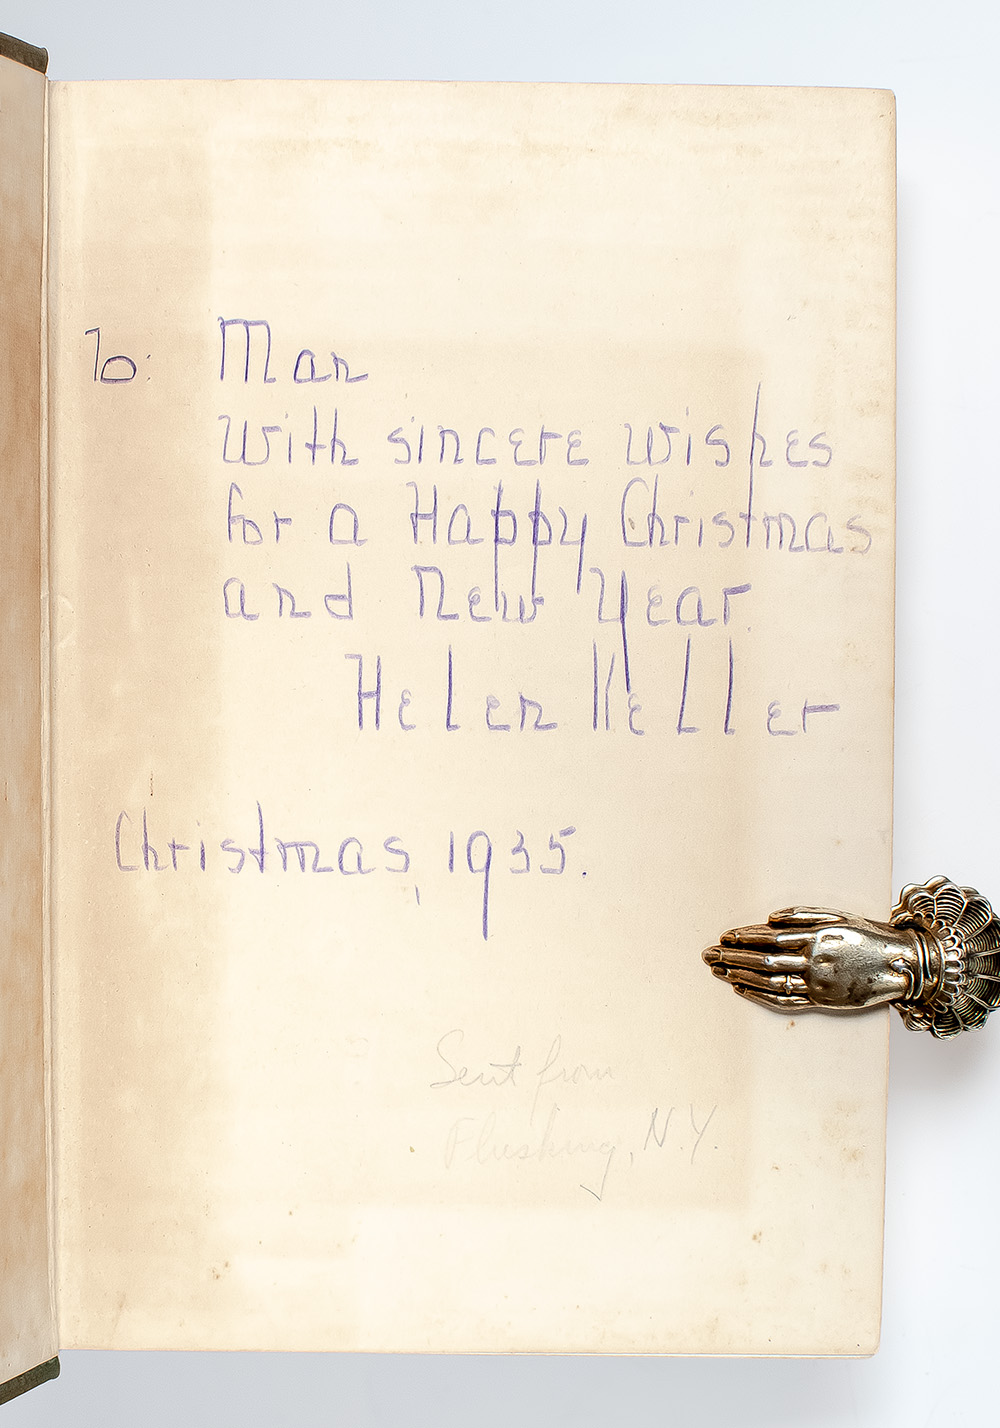 To: Man
with sincere wishes
for a Happy Christmas
and New Year
Helen Keller
Christmas, 1935.
Sent from
Flushing, N.Y.